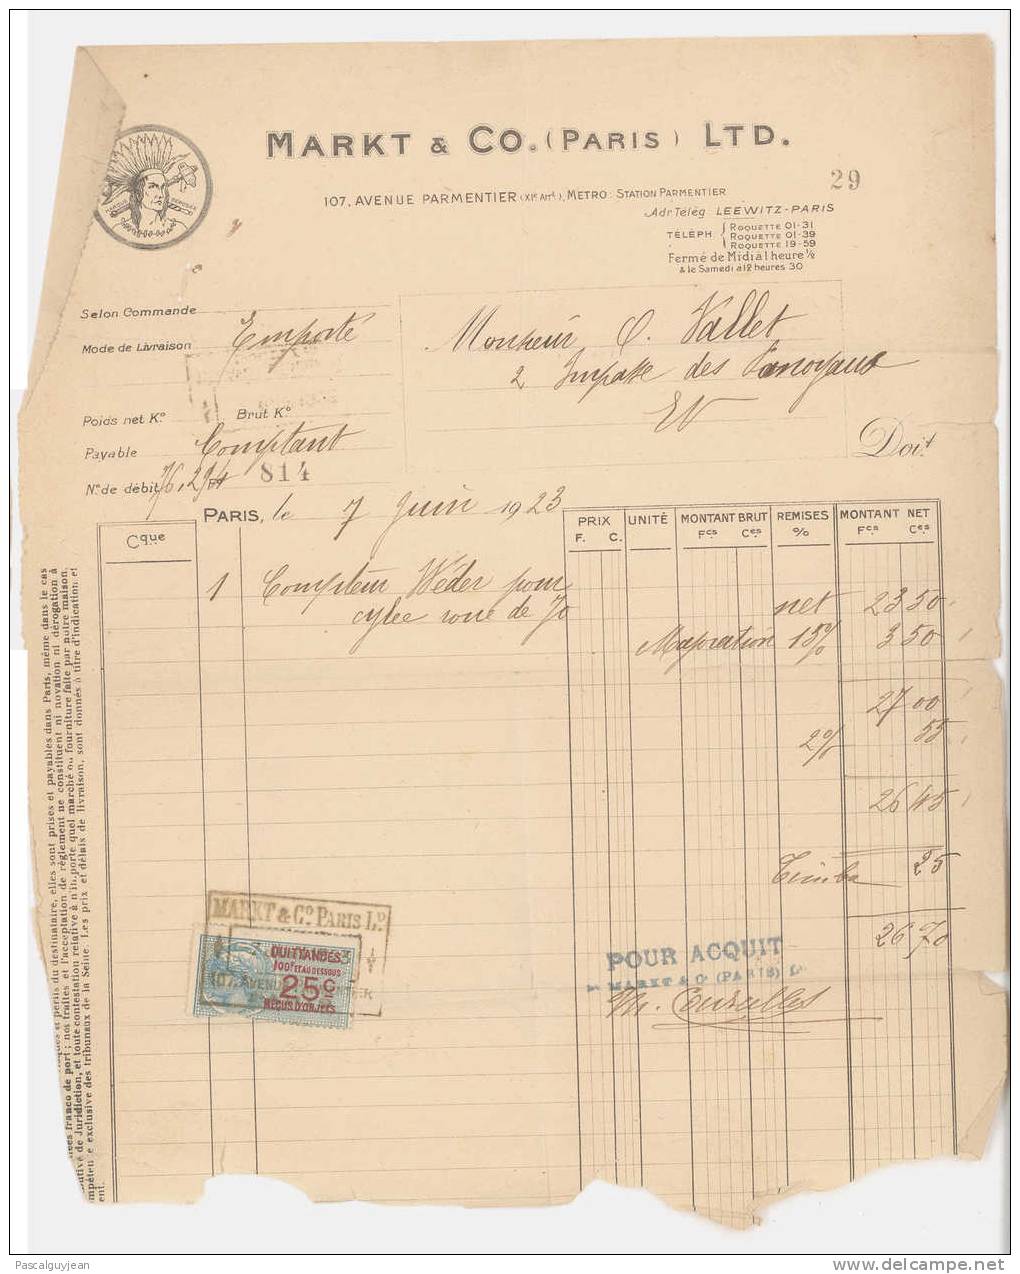 MARKT & CO. (PARIS) LTD.
29
107, AVENUE PARMENTIER (XIe Arrt), METRO: STATION PARMENTIER
Adr Télég LEEWITZ-PARIS
TÉLÉPH { ROQUETTE 01-31
ROQUETTE 01-39
ROQUETTE 19-59
Fermé de Midi à 1 heure ½
& le Samedi à 12 heures 30
MARQUE DÉPOSÉE
Selon Commande
Mode de Livraison Emporté
Monsieur C. Vallet
2 Impasse des
EV
Poids net Ko. Brut Ko
Payable Comptant
Doit
No. de débit 814
PARIS, le 7 Juin 1923
Cque
PRIX
F. C.
UNITÉ
MONTANT BRUT
Fcs Ces
REMISES
%
MONTANT NET
Fcs Ces
1 Compteur Véder pour
cycle roue de 70 net 23 50
Majoration 15% 3 50
27 00
2% 55
26 45
Timbre 25
26 70
MARKT & Co PARIS LD
QUITTANCES
100F ET AU DESSOUS
25c
REÇUS D'OBJETS
107, AVENUE
POUR ACQUIT
Pr MARKT & Co (PARIS) Ld
risques et périls du destinataire, elles sont prises et payables dans Paris, même dans le cas
franco de port; nos traites et l'acceptation de règlement ne constituent ni novation ni dérogation à
de Juridiction, et toute contestation relative à n'importe quel marché ou fourniture faite par notre maison,
e exclusive des tribunaux de la Seine. Les prix et délais de livraison, sont donnés à titre d'indication et
ent.
Pascalguyjean
delcampe.net